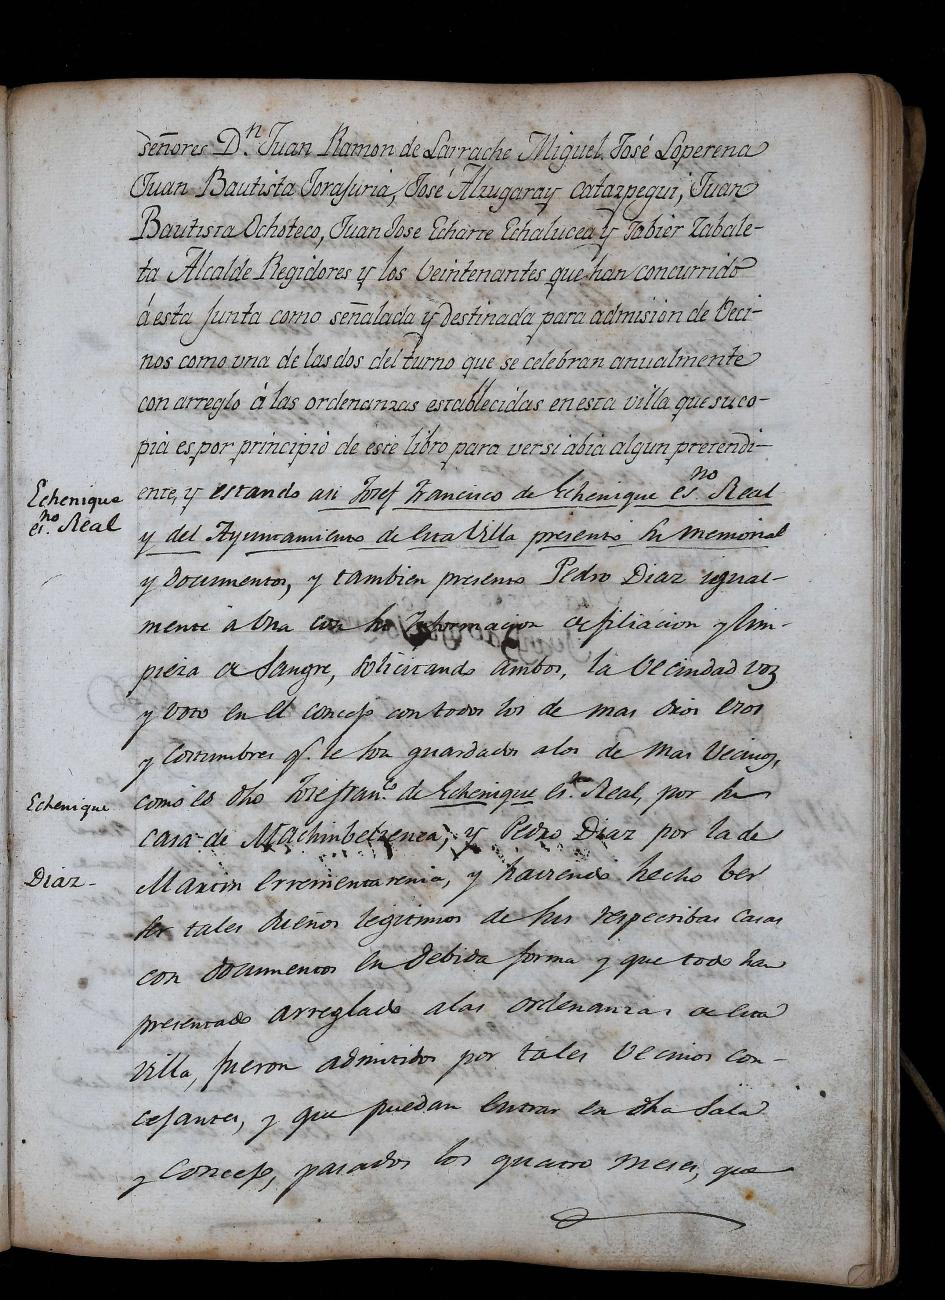 señores D.n Juan Ramon de Larrache Miguel José Loperena
Juan Bautista Jorajuria, José Alzugaray Cotazpegui, Juan
Bautista Ochoteco, Juan Jose Echarte Echalucea y Jabier Zabale-
ta Alcalde Regidores y los veintenantes que han concurrido
á esta Junta como señalada y destinada para admision de Veci-
nos como una de las dos del turno que se celebran anualmente
con arreglo á las ordenanzas establecidas en esta villa que su co-
pia es por principio de este libro para ver si abia algun pretendi-
ente, y estando asi Josef Francisco de Echenique es.no Real
Echenique
es.no Real
y del Ayuntamiento de esta Villa presentó su memorial
y documentos, y tambien presento Pedro Diaz igual-
mente á una con su Informacion de filiacion y lim-
pieza de Sangre, solicitando ambos, la Vecindad voz
y voto en el Concejo con todos los de mas dros
y costumbres q.e le son guardados a los de mas Vecinos,
como es dho Josef Fran.co de Echenique es.no Real, por su
Echenique
casa de Machinbeltzenea, y Pedro Diaz por la de
Diaz-
Martin errementarenia, y haviendo hecho ber
ser tales dueños legitimos de sus respectibas casas
con documentos en debida forma y que todo han
presentado arreglado a las ordenanzas de esta
villa, fueron admitidos por tales Vecinos con-
cejantes, y que puedan entrar en dha Sala
y Concejo, pasados los quatro meses, que